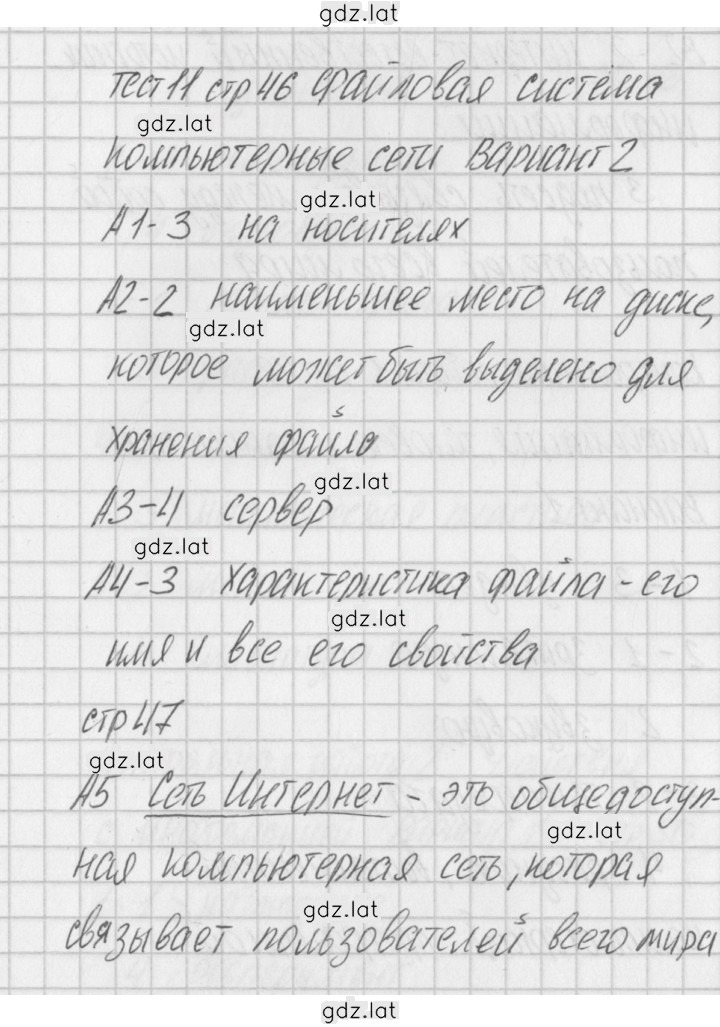 gdz.lat
тест 11 стр 46 файловая система
gdz.lat
компьютерные сети вариант 2
gdz.lat
А1-3 на носителях
А2-2 наименьшее место на диске,
gdz.lat
которое может быть выделено для
хранения файла
gdz.lat
А3-4 сервер
gdz.lat
А4-3 характеристика файла - его
gdz.lat
имя и все его свойства
стр 47
gdz.lat
А5 Сеть Интернет - это общедоступ-
gdz.lat
ная компьютерная сеть, которая
gdz.lat
связывает пользователей всего мира
gdz.lat